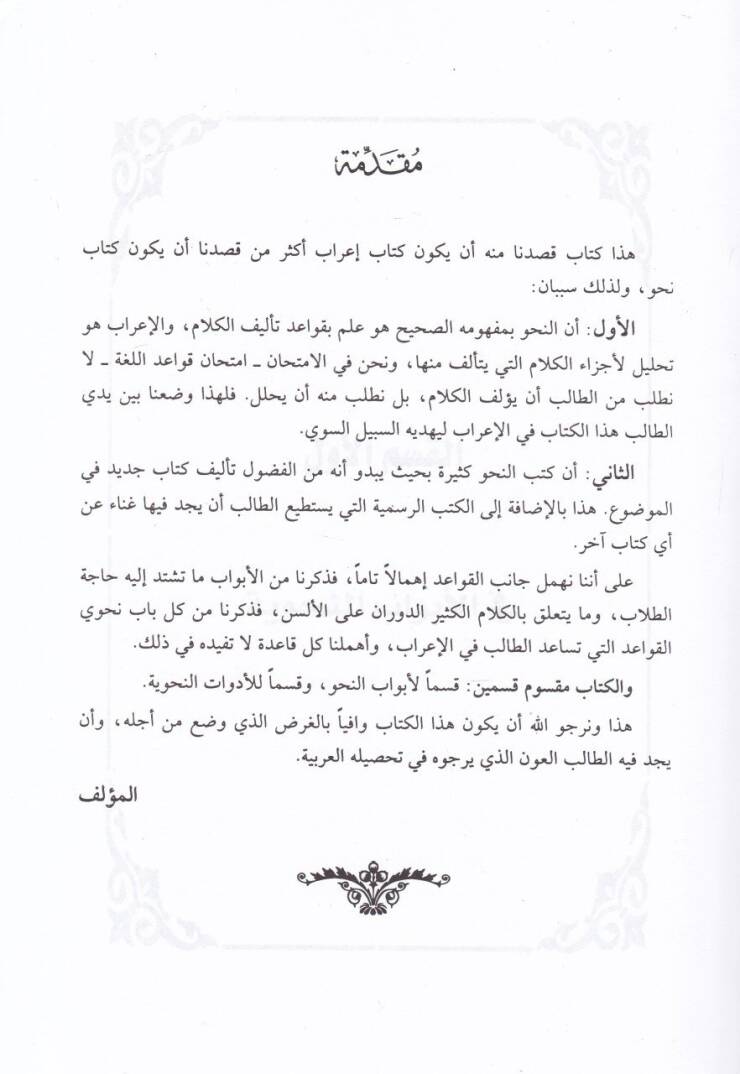 مُقَدِّمَة
هذا كتاب قصدنا منه أن يكون كتاب إعراب أكثر من قصدنا أن يكون كتاب
نحو، ولذلك سببان:
الأول: أن النحو بمفهومه الصحيح هو علم بقواعد تأليف الكلام، والإعراب هو
تحليل لأجزاء الكلام التي يتألف منها، ونحن في الامتحان ـ امتحان قواعد اللغة ـ لا
نطلب من الطالب أن يؤلف الكلام، بل نطلب منه أن يحلل. فلهذا وضعنا بين يدي
الطالب هذا الكتاب في الإعراب ليهديه السبيل السوي.
الثاني: أن كتب النحو كثيرة بحيث يبدو أنه من الفضول تأليف كتاب جديد في
الموضوع. هذا بالإضافة إلى الكتب الرسمية التي يستطيع الطالب أن يجد فيها غناء عن
أي كتاب آخر.
على أننا نهمل جانب القواعد إهمالاً تاماً، فذكرنا من الأبواب ما تشتد إليه حاجة
الطلاب، وما يتعلق بالكلام الكثير الدوران على الألسن، فذكرنا من كل باب نحوي
القواعد التي تساعد الطالب في الإعراب، وأهملنا كل قاعدة لا تفيده في ذلك.
والكتاب مقسوم قسمين: قسماً لأبواب النحو، وقسماً للأدوات النحوية.
هذا ونرجو الله أن يكون هذا الكتاب وافياً بالغرض الذي وضع من أجله، وأن
يجد فيه الطالب العون الذي يرجوه في تحصيله العربية.
المؤلف